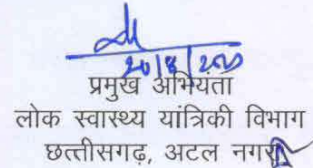 प्रमुख अभियंता
लोक स्वास्थ्य यांत्रिकी विभाग
छत्तीसगढ़, अटल नगर